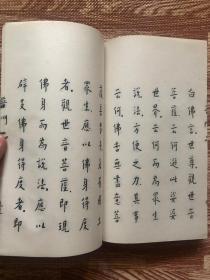 白佛言.世尊.觀世音
菩薩.云何遊此娑婆
世界.云何而為眾生
說法.方便之力.其事
云何.佛告無盡意菩
薩.善男子.若有國土
眾生.應以佛身得度
者.觀世音菩薩.即現
佛身而為說法.應以
辟支佛身得度者.即